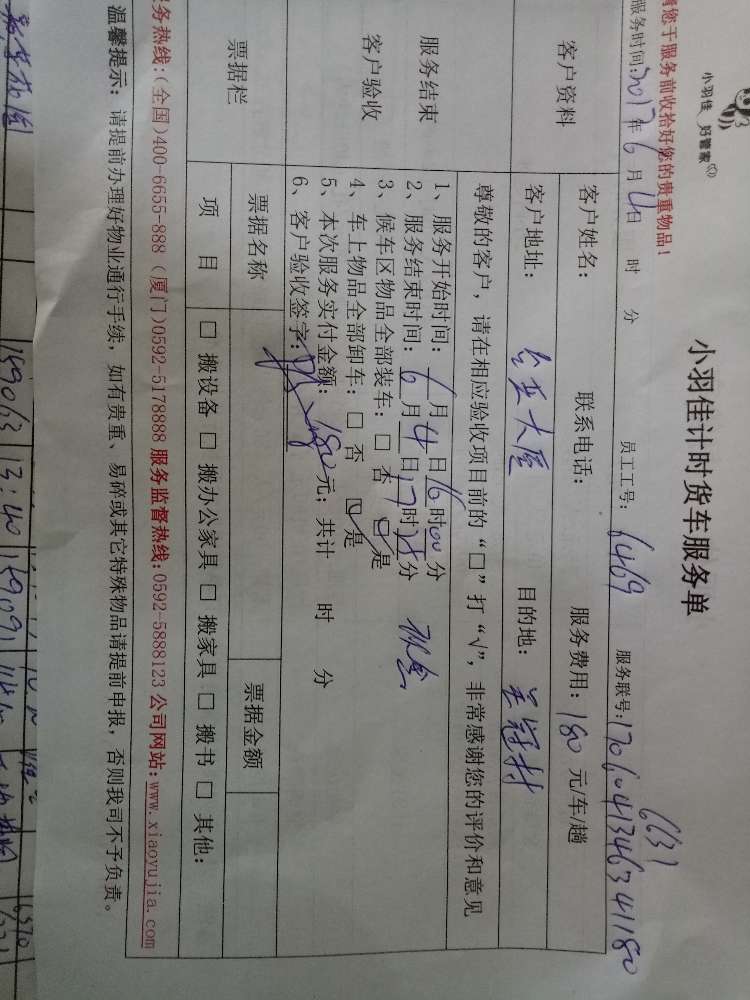 小羽佳 好管家
小羽佳计时货车服务单
请您于服务前收拾好您的贵重物品!
6631
服务时间:2017年6月4日 时 分 员工工号:6469 服务联号:1706041346341180
客户资料
客户姓名: 联系电话: 服务费用:180元/车/趟
客户地址: 目的地:
尊敬的客户，请在相应验收项目前的“□”打“√”，非常感谢您的评价和意见
服务结束
客户验收
1、服务开始时间:6月4日16时00分
2、服务结束时间:6月4日17时分
3、候车区物品全部装车:□否 ☑是
4、车上物品全部卸车:□否 ☑是
5、本次服务实付金额:180元；共计 时 分
6、客户验收签字:
票据栏
票据名称 票据金额
项 目 □搬设备 □搬办公家具 □搬家具 □搬书 □其他:
服务热线:(全国)400-6655-888 (厦门)0592-5178888 服务监督热线:0592-5888123 公司网站:www.xiaoyujia.com
温馨提示：请提前办理好物业通行手续，如有贵重、易碎或其它特殊物品请提前申报，否则我司不予负责。
13:40